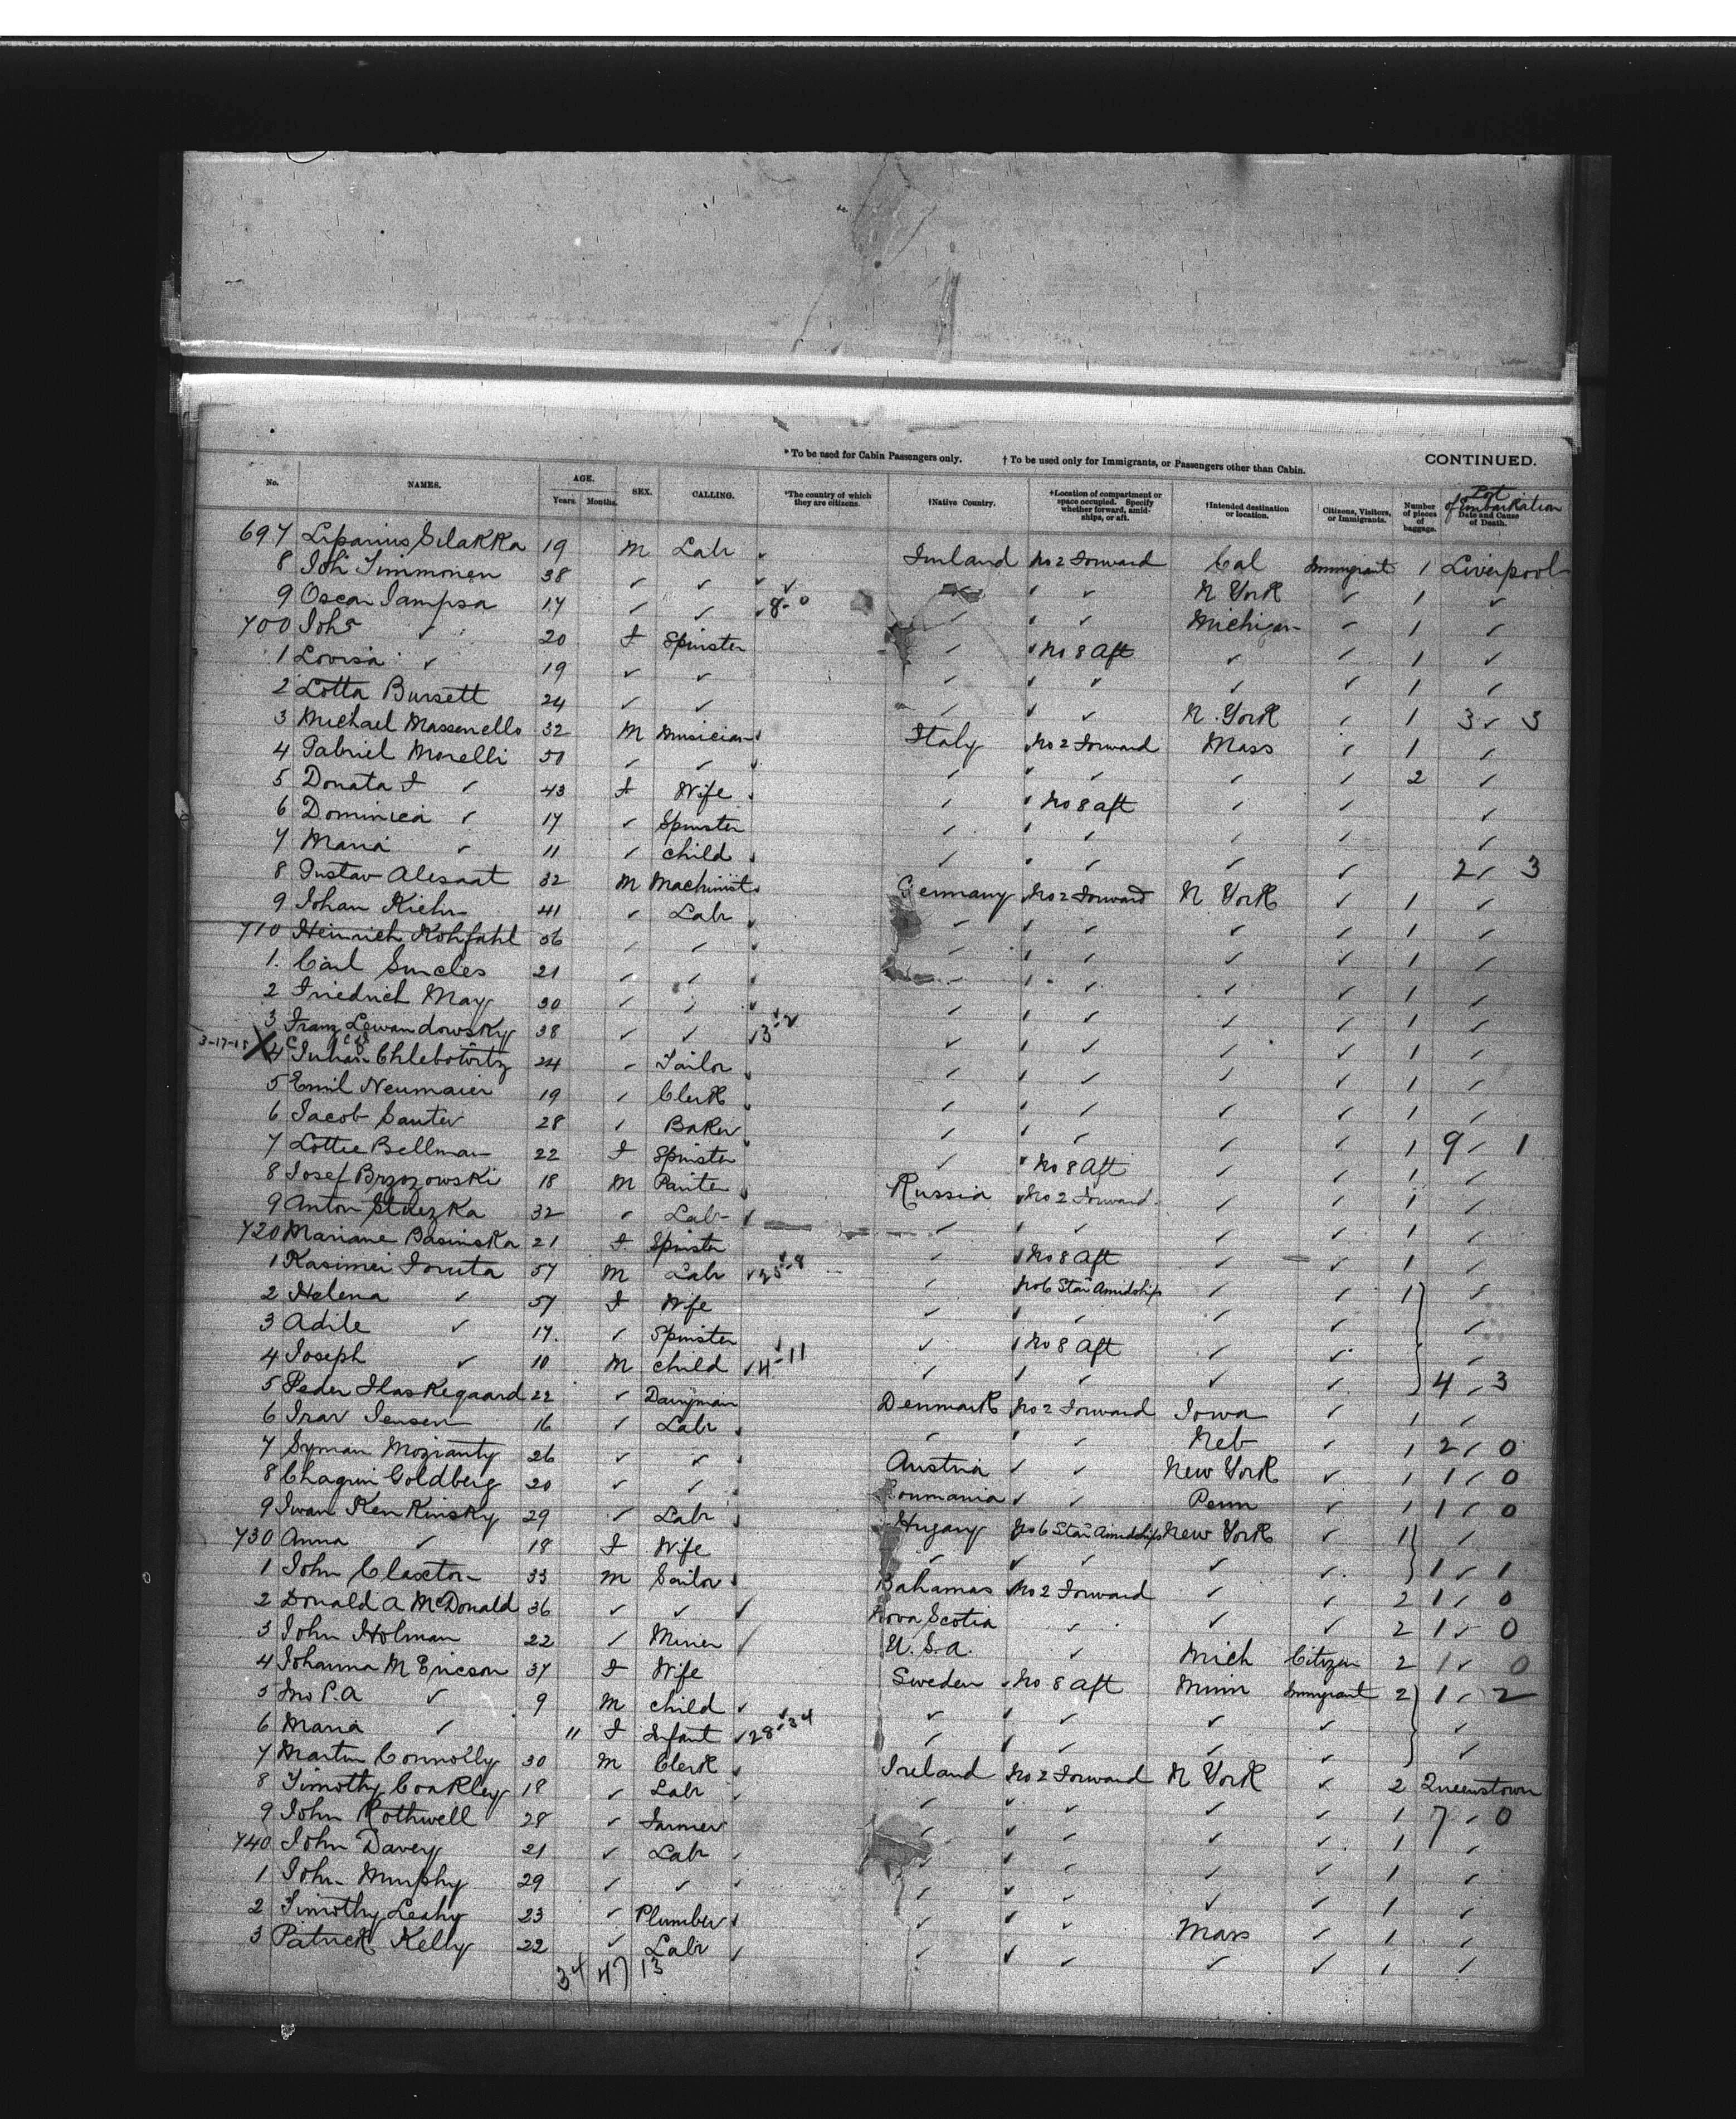 * To be used for Cabin Passengers only. † To be used only for Immigrants, or Passengers other than Cabin. CONTINUED.
No. NAMES. AGE. Years. Months. SEX. CALLING. *The country of which they are citizens. †Native Country. †Location of compartment or space occupied. Specify whether forward, amidships, or aft. †Intended destination or location. Citizens, Visitors, or Immigrants. Number of pieces of baggage. Date and Cause of Death. Port of Embarkation
697 19 M Labr No 2 Forward Cal Immigrant 1 Liverpool
8 Joh Timmonen 38 ✓ ✓ ✓ ✓ N York ✓ 1 ✓
9 Oscar 17 ✓ ✓ 8-0 ✓ ✓ ✓ Michigan ✓ 1 ✓
700 ✓ 20 F Spinster ✓ No 8 Aft ✓ ✓ 1 ✓
1 Lovisa ✓ 19 ✓ ✓ ✓ ✓ ✓ ✓ ✓ 1 ✓
2 Lotta Bursett 24 ✓ ✓ ✓ ✓ ✓ N. York ✓ 1 3 ✓ 3
3 Michael 32 M Musician Italy No 2 Forward Mass ✓ 1 ✓
4 Gabriel Morelli ✓ ✓ ✓ ✓ ✓ ✓ ✓ 2 ✓
5 Donata F ✓ 43 F Wife ✓ No 8 aft ✓ ✓ ✓
6 Dominica ✓ 17 ✓ Spinster ✓ ✓ ✓ ✓ ✓ ✓
7 Maria ✓ 11 ✓ child ✓ ✓ ✓ ✓ ✓ 2 ✓ 3
8 Gustav 32 M Machinist Germany No 2 Forward N York ✓ 1 ✓
9 Johan Kiehn 41 ✓ Labr ✓ ✓ ✓ ✓ ✓ 1 ✓
710 Heinrich Kohfahl 36 ✓ ✓ ✓ ✓ ✓ ✓ ✓ 1 ✓
1. Carl 21 ✓ ✓ ✓ ✓ ✓ ✓ ✓ 1 ✓
2 Friedrich May 30 ✓ ✓ ✓ ✓ ✓ ✓ ✓ 1 ✓
3 Franz Lewandowsky 38 ✓ ✓ 13-2 ✓ ✓ ✓ ✓ ✓ 1 ✓
3-17-18 X 4 24 ✓ Tailor ✓ ✓ ✓ ✓ ✓ 1 ✓
5 Emil Neumaier 19 ✓ Clerk ✓ ✓ ✓ ✓ ✓ 1 ✓
6 Jacob Sauter 28 ✓ Baker ✓ ✓ ✓ ✓ ✓ 1 9 ✓ 1
7 Lottie Bellman 22 F Spinster ✓ No 8 Aft ✓ ✓ 1 ✓
8 Josef Brzozowski 18 M Painter Russia No 2 Forward ✓ ✓ 1 ✓
9 Anton 32 ✓ Labr ✓ ✓ ✓ ✓ ✓ 1 ✓
720 Mariane Basinska 21 F Spinster ✓ No 8 Aft ✓ ✓ 1 ✓
1 57 M Labr ✓ No 6 Star Amidships ✓ ✓ 1 ✓
2 Helena ✓ F Wife ✓ ✓ ✓ ✓ ✓ ✓
3 Adile ✓ 17. ✓ Spinster ✓ No 8 Aft ✓ ✓ ✓
4 Joseph ✓ 10 M child ✓ ✓ ✓ ✓ ✓ 4 ✓ 3
5 Peder 22 ✓ Dairyman Denmark No 2 Forward Iowa ✓ 1 ✓
6 Jensen 16 ✓ Labr ✓ ✓ ✓ Neb ✓ 1 2 ✓ 0
7 Syman 26 ✓ ✓ Austria ✓ ✓ New York ✓ 1 1 ✓ 0
8 Goldberg 20 ✓ ✓ Roumania ✓ ✓ Penn ✓ 1 1 ✓ 0
9 Iwan KenKinsky 29 ✓ Labr Hugary No 6 Star Amidships New York ✓ 1 ✓
730 Anna ✓ 18 F Wife ✓ ✓ ✓ ✓ ✓ 1 ✓ 1
1 John Claxton 33 M Sailor Bahamas No 2 Forward ✓ ✓ 2 1 ✓ 0
2 Donald A McDonald 36 ✓ ✓ ✓ Nova Scotia ✓ ✓ ✓ 2 1 ✓ 0
3 John Holman 22 ✓ Miner U.S.A. ✓ Mich Citizen 2 1 ✓ 0
4 Johanna M Ericson 37 F Wife Sweden No 8 aft Minn Immigrant 2 1 ✓ 2
5 Jno P. A ✓ 9 M child ✓ ✓ ✓ ✓ ✓ ✓ ✓
6 Maria ✓ 11 F Infant 28-34 ✓ ✓ ✓ ✓ ✓ ✓
7 Martin Connolly 30 M Clerk Ireland No 2 Forward N York ✓ 2 Queenstown
8 Timothy Coakley 18 ✓ Labr ✓ ✓ ✓ ✓ ✓ 1 7 ✓ 0
9 John Rothwell 28 ✓ Farmer ✓ ✓ ✓ ✓ ✓ 1 ✓
740 John Davey 21 ✓ Labr ✓ ✓ ✓ ✓ ✓ 1 ✓
1 John Murphy 29 ✓ ✓ ✓ ✓ ✓ ✓ ✓ 1 ✓
2 Timothy Leahy 23 ✓ Plumber ✓ ✓ ✓ Mass ✓ 1 ✓
3 Patrick Kelly 22 ✓ Labr ✓ ✓ ✓ ✓ ✓ 1 ✓
34 47 13